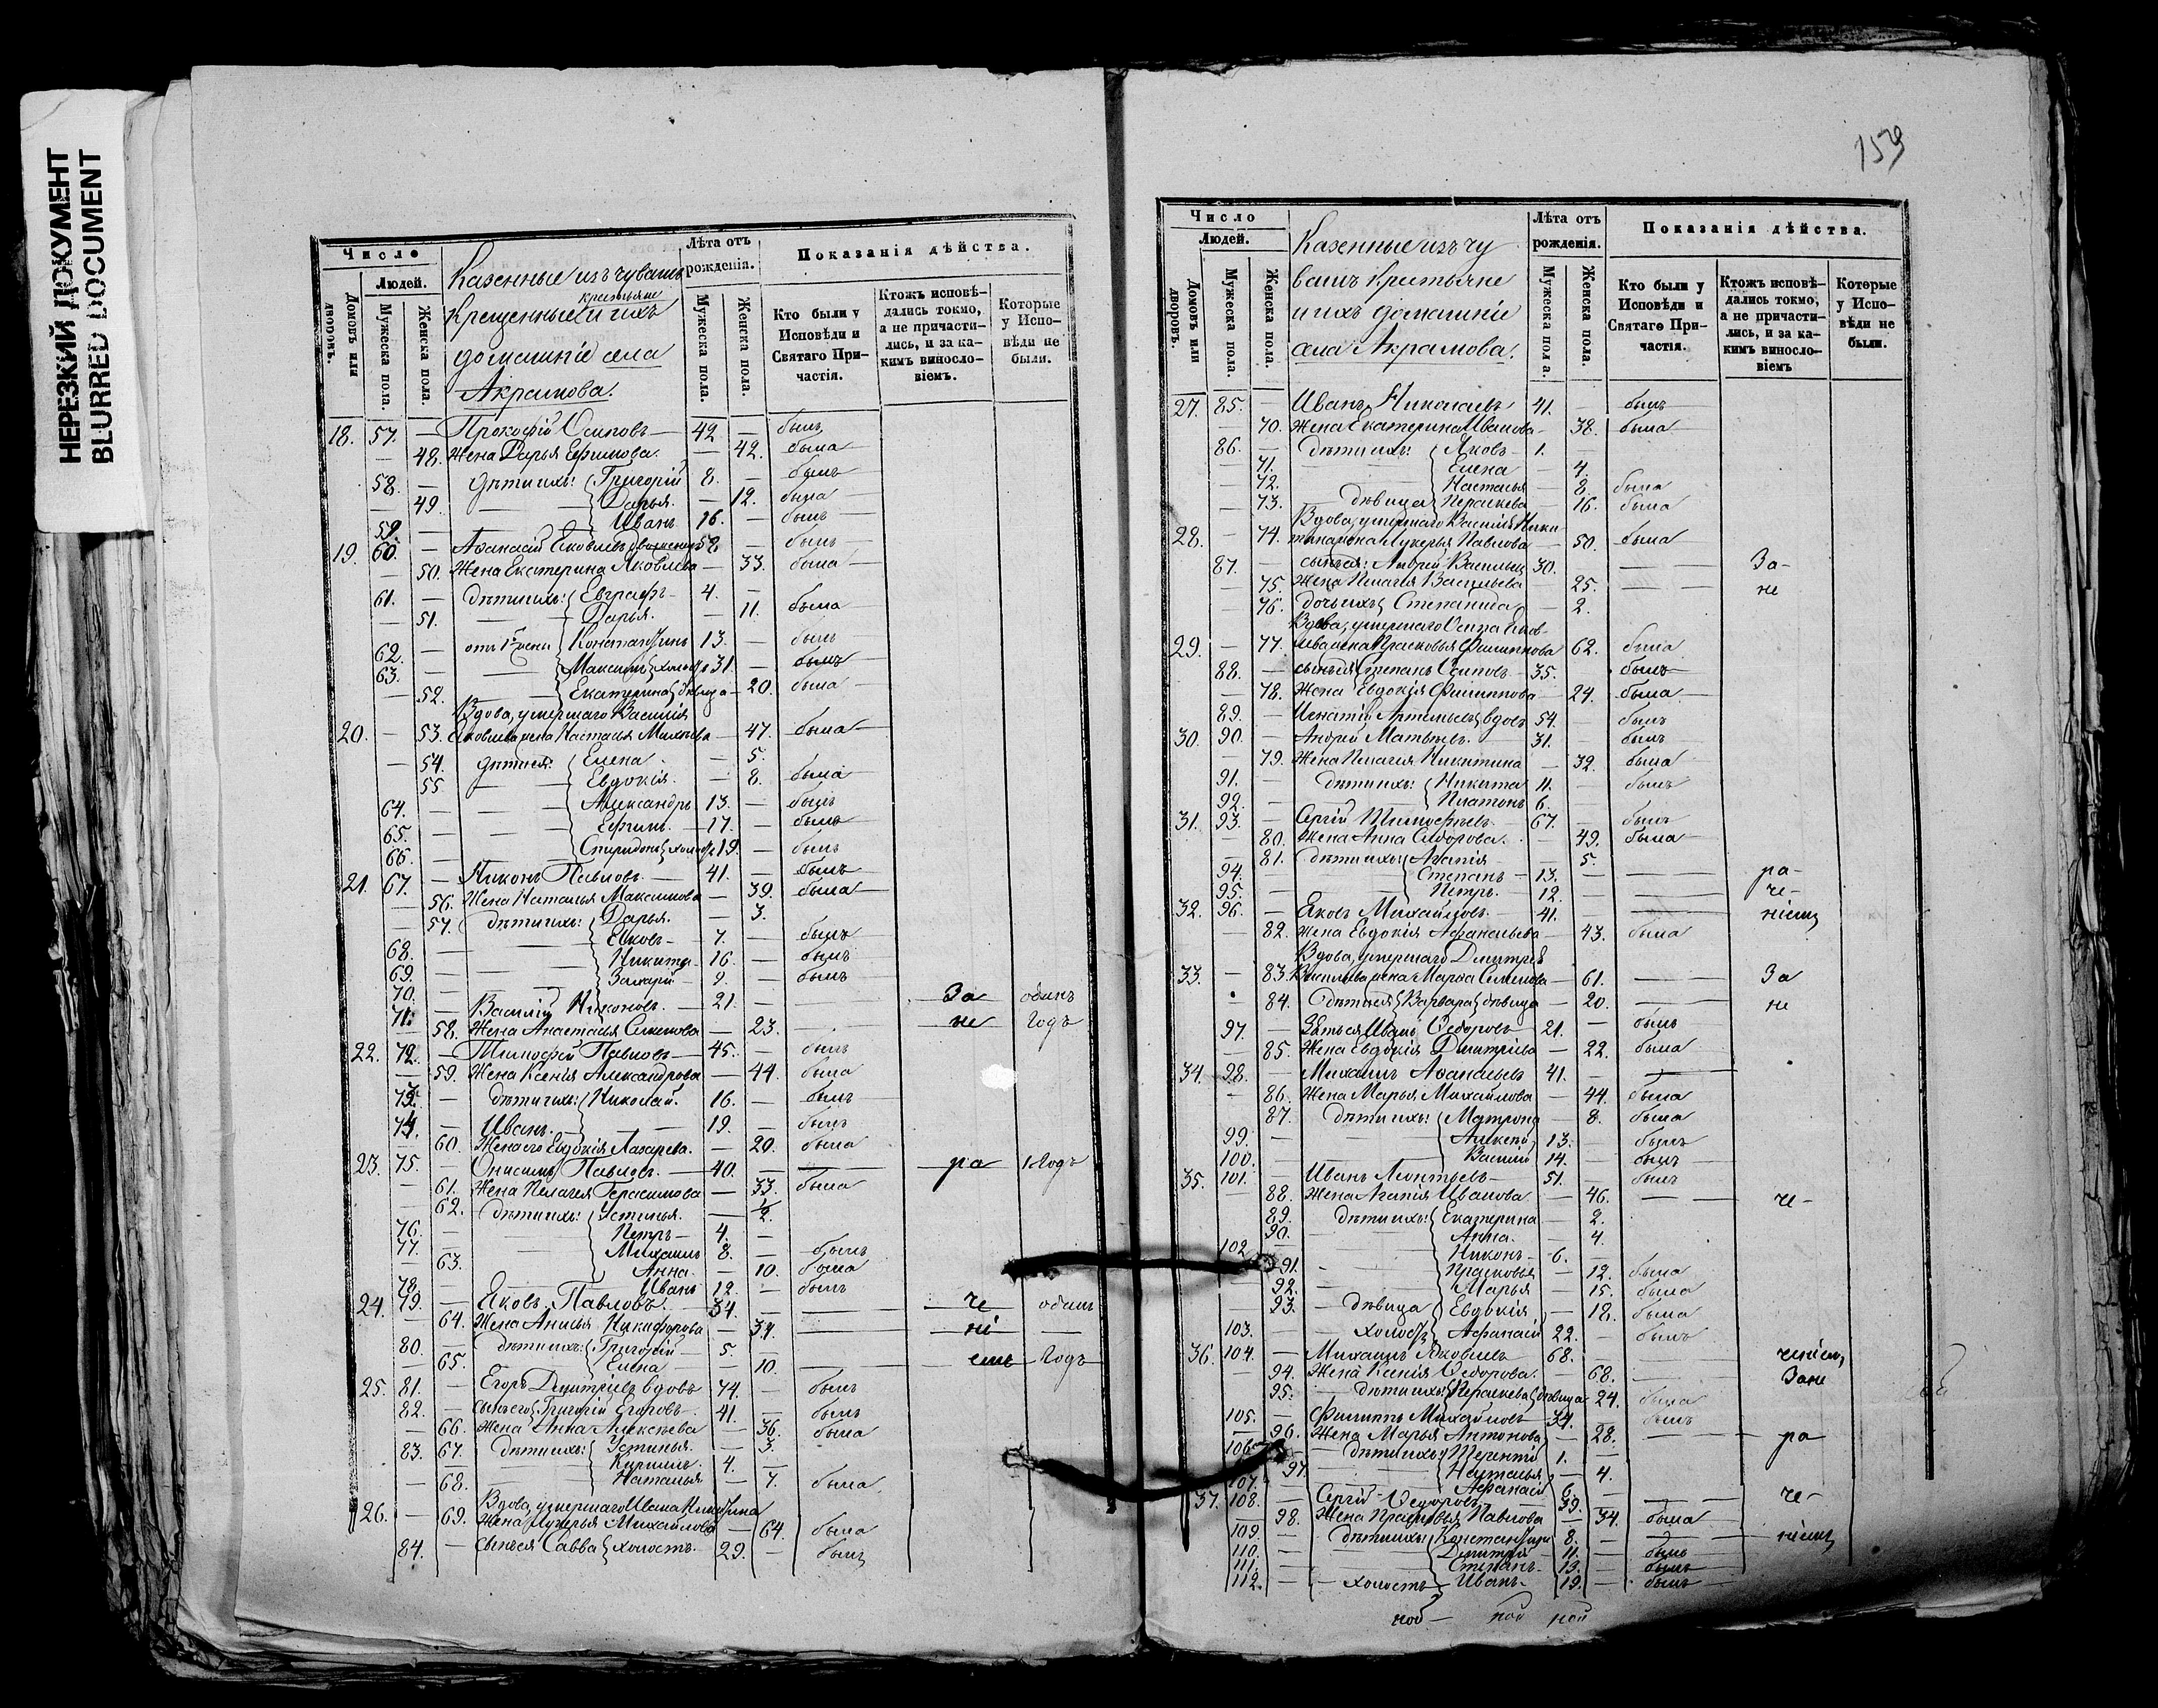 НЕРЕЗКИЙ ДОКУМЕНТ
BLURRED DOCUMENT
Число
Домовъ или дворовъ.
Людей.
Мужеска пола.
Женска пола.
Казенные изъ чувашъ
крестьяне
Крещенные и ихъ
домашніе села
Акрамова.
Лѣта отъ рожденія.
Мужеска пола.
Женска пола.
Показанія дѣйства.
Кто были у Исповѣди и Святаго Причастія.
Ктожъ исповѣдались токмо, а не причастились, и за какимъ винословіемъ.
Которые у Исповѣди не были.
18. 57. — Прокофій Осиповъ — 42. — былъ
— 48. Жена Дарья Ефимова. — 42. была
58. — дѣти ихъ: Григорій 8. — былъ
— 49. — Дарья. — 12. была
59. — Иванъ 16. — былъ
19. 60. — Аѳанасій Яковлевъ двоженецъ 58 — былъ
— 50. Жена Екатерина Яковлева — 33. была
61. — дѣти ихъ: Евграфъ — 4. —
— 51. — Дарья. — 11. была
62. — отъ 1й жены Константинъ 13. — былъ
63. — Максимъ холостъ 31. — былъ
— 52. — Екатерина дѣвица — 20. была
Вдова, умершаго Василія
20. — 53. Яковлева жена Настасья Михеева — 47. была
— 54. дѣти ея: Елена — 5.
55 — Евдокія. — 8. была
64. — Александръ 13. — былъ
65. — Ефимъ. — 17. — былъ
66. — Спиридонъ холостъ 19. — былъ
21. 67. — Никонъ Павловъ. — 41. — былъ
— 56. Жена Наталья Максимова — 39. была
— 57. дѣти ихъ: Дарья. — 3.
68. — Яковъ — 7. — былъ
69. — Никита — 16. — былъ
70. — Захарій — 9. — былъ
71. — Василій Никоновъ. — 21. — За одинъ
— 58. Жена Анастасья Семенова — 23. — не Годъ
22. 72. — Тимофей Павловъ — 45. — былъ
— 59. Жена Ксенія Александрова — 44. была
73. — дѣти ихъ: Николай. 16. — былъ
74. — Иванъ. — 19. — былъ
60. Жена его Евдокія Лазарева. — 20. была
23. 75. — Онисимъ Павловъ. — 40. — ра 1 Годъ
— 61. Жена Пелагея Герасимова — 33. была
— 62. дѣти ихъ: Устинья. — 1/2.
76. — Петръ — 4. —
77. — Михаилъ 8. — былъ
— 63. Анна. — 10. была
78. — Иванъ 12. — былъ
24. 79. — Яковъ Павловъ. — 34. — че одинъ
— 64. Жена Анисья Никифорова — 34. — ні —
80. — дѣти ихъ: Григорій — 5. —
— 65. — Елена — 10. — емъ Годъ
25. 81. — Егоръ Дмитріевъ вдовъ 74. — былъ
82. — сынъ его Григорій Егоровъ. 41. — былъ
— 66. Жена Анна Алексѣева — 36. была
83. 67. дѣти ихъ: Устинья. — 3.
— Кирилъ. 4. —
— 68. — Наталья — 7. была
Вдова, умершаго Ивана Никитина
26. — 69. Жена Лукерья Михайлова — 64. была
84. — сынъ ея Савва холостъ. 29. — былъ
159
Число
Домовъ или дворовъ.
Людей.
Мужеска пола.
Женска пола.
Казенные изъ чу
вашъ Крестьяне
и ихъ домашніе
села Акрамова.
Лѣта отъ рожденія.
Мужеска пола.
Женска пола.
Показанія дѣйства.
Кто были у Исповѣди и Святаго Причастія.
Ктожъ исповѣдались токмо, а не причастились, и за какимъ винословіемъ
Которые у Исповѣди не были.
27. 85. — Иванъ Николаевъ 41. — былъ
— 70. Жена Екатерина Иванова — 38. была
86. — дѣти ихъ: Яковъ — 1. —
— 71. Елена — 4.
— 72. Настасья — 8. была
— 73. дѣвица Параскева — 16. была
Вдова, умершаго Василія Ники-
28. — 74. тина жена Лукерья Павлова — 50. была
87. — сынъ ея: Андрей Васильевъ 30. — За-
— 75. Жена Пелагея Васильева 25. — не
— 76. дочь ихъ Степанида — 2.
Вдова, умершаго Осипа Яков-
29. — 77. лева жена Прасковья Филиппова 62. была
88. — сынъ ея Степанъ Осиповъ — 35. былъ
— 78. Жена Евдокія Филиппова — 24. была
89. — Игнатій Артемьевъ вдовъ 54. — былъ
30. 90. — Андрей Матвѣевъ. 31. — былъ
— 79. Жена Пелагея Никитина — 32. была
91. — дѣти ихъ: Никита 11. — былъ
92. — Платонъ 6. —
31. 93. — Сергій Тимофѣевъ. — 67. — былъ
— 80. Жена Анна Сидорова. — 49. была
— 81. дѣти ихъ: Агапія — 5.
94. — Степанъ — 13. — ра-
95. — Петръ. 12. — че-
32. 96. — Яковъ Михайловъ. 41. — ніемъ
— 82. Жена Евдокія Аѳанасьева — 43. была
Вдова, умершаго Дмитрія
33. — 83. Васильева жена Марѳа Семенова — 61. — За
84. дѣти ея Варвара дѣвица — 20. — не
97. — Зять ея Иванъ Ѳедоровъ 21. — былъ
— 85. Жена Евдокія Дмитріева — 22. была
34. 98. — Михаилъ Аѳанасьевъ 41. —
— 86. Жена Марья Михайлова — 44. была
— 87. дѣти ихъ: Матрона — 8. была
99. — Алексѣй 13. — былъ
100. — Василій 14. — былъ
35. 101. — Иванъ Леонтьевъ — 51. — былъ
— 88. Жена Агапія Иванова — 46. — че-
89. дѣти ихъ: Екатерина — 2.
90. — Анна. — 4.
102 — Никонъ — 6. —
91. — Прасковья — 12. была
92. — Марья — 15. была
93. — дѣвица Евдокія — 18. была
103. — холостъ Аѳанасій 22. — былъ
36. 104. — Михаилъ Яковлевъ 68. — ченіемъ,
— 94. Жена Ксенія Ѳедорова. — 68. — Зане
95. — дѣти ихъ: Параскева дѣвица — 24. была
105. — Филиппъ Михайловъ — 34. — былъ
— 96. Жена Марья Антонова — 28. — ра
106. — дѣти ихъ: Терентій 1. —
97. — Наталья — 4.
107. — Аѳанасій 6. —
37. 108. — Сергій Ѳедоровъ — 39. — че-
— 98. Жена Прасковья Павлова — 34. была
109. — дѣти ихъ: Константинъ 8. — ніемъ
110. — Дмитрій — 11. — былъ
111. — Степанъ — 13. — былъ
112. — холостъ Иванъ — 19. — былъ